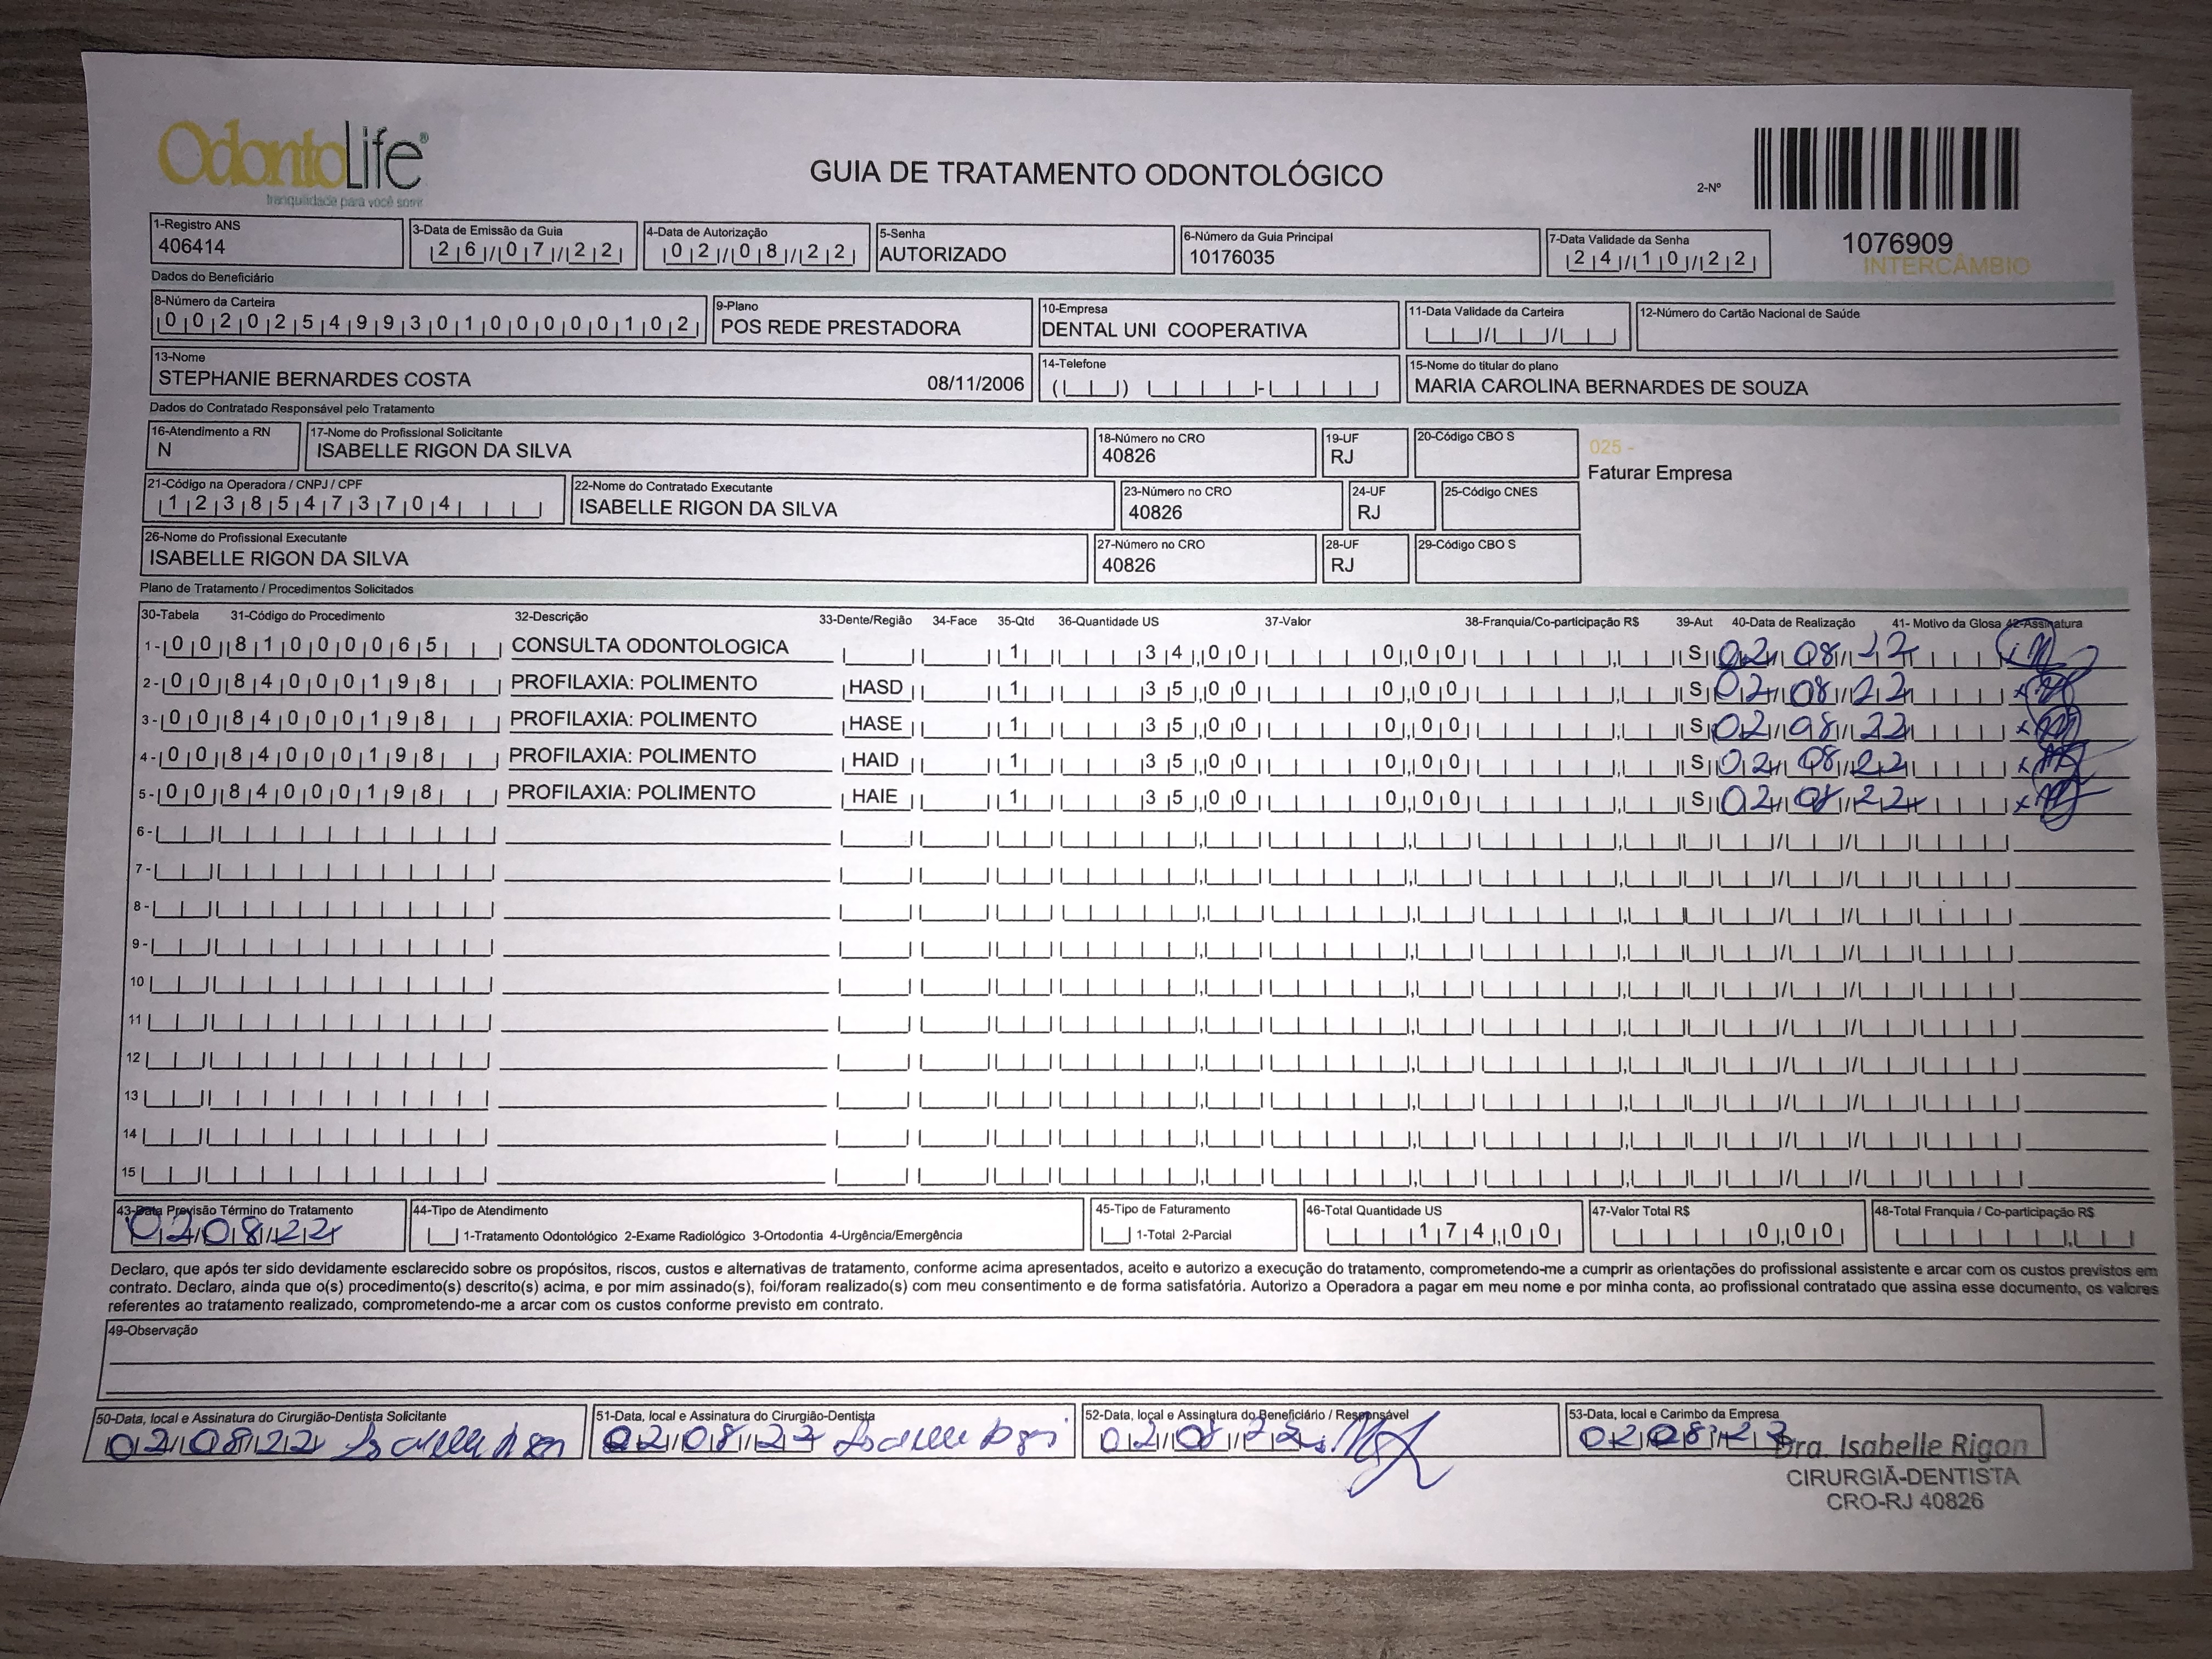 OdontoLife®
tranquilidade para você sorrir
GUIA DE TRATAMENTO ODONTOLÓGICO
2-Nº
1076909
INTERCÂMBIO
1-Registro ANS
406414
3-Data de Emissão da Guia
26/07/22
4-Data de Autorização
02/08/22
5-Senha
AUTORIZADO
6-Número da Guia Principal
10176035
7-Data Validade da Senha
24/10/22
Dados do Beneficiário
8-Número da Carteira
00202549930100000102
9-Plano
POS REDE PRESTADORA
10-Empresa
DENTAL UNI COOPERATIVA
11-Data Validade da Carteira
12-Número do Cartão Nacional de Saúde
13-Nome
STEPHANIE BERNARDES COSTA 08/11/2006
14-Telefone
15-Nome do titular do plano
MARIA CAROLINA BERNARDES DE SOUZA
Dados do Contratado Responsável pelo Tratamento
16-Atendimento a RN
N
17-Nome do Profissional Solicitante
ISABELLE RIGON DA SILVA
18-Número no CRO
40826
19-UF
RJ
20-Código CBO S
025 -
Faturar Empresa
21-Código na Operadora / CNPJ / CPF
12385473704
22-Nome do Contratado Executante
ISABELLE RIGON DA SILVA
23-Número no CRO
40826
24-UF
RJ
25-Código CNES
26-Nome do Profissional Executante
ISABELLE RIGON DA SILVA
27-Número no CRO
40826
28-UF
RJ
29-Código CBO S
Plano de Tratamento / Procedimentos Solicitados
30-Tabela 31-Código do Procedimento 32-Descrição 33-Dente/Região 34-Face 35-Qtd 36-Quantidade US 37-Valor 38-Franquia/Co-participação R$ 39-Aut 40-Data de Realização 41- Motivo da Glosa 42-Assinatura
1- 00 81000065 CONSULTA ODONTOLOGICA 1 34,00 0,00 S 02/08/22
2- 00 84000198 PROFILAXIA: POLIMENTO HASD 1 35,00 0,00 S 02/08/22
3- 00 84000198 PROFILAXIA: POLIMENTO HASE 1 35,00 0,00 S 02/08/22
4- 00 84000198 PROFILAXIA: POLIMENTO HAID 1 35,00 0,00 S 02/08/22
5- 00 84000198 PROFILAXIA: POLIMENTO HAIE 1 35,00 0,00 S 02/08/22
6-
7-
8-
9-
10
11
12
13
14
15
43-Data Previsão Término do Tratamento
02/08/22
44-Tipo de Atendimento
1-Tratamento Odontológico 2-Exame Radiológico 3-Ortodontia 4-Urgência/Emergência
45-Tipo de Faturamento
1-Total 2-Parcial
46-Total Quantidade US
174,00
47-Valor Total R$
0,00
48-Total Franquia / Co-participação R$
Declaro, que após ter sido devidamente esclarecido sobre os propósitos, riscos, custos e alternativas de tratamento, conforme acima apresentados, aceito e autorizo a execução do tratamento, comprometendo-me a cumprir as orientações do profissional assistente e arcar com os custos previstos em
contrato. Declaro, ainda que o(s) procedimento(s) descrito(s) acima, e por mim assinado(s), foi/foram realizado(s) com meu consentimento e de forma satisfatória. Autorizo a Operadora a pagar em meu nome e por minha conta, ao profissional contratado que assina esse documento, os valores
referentes ao tratamento realizado, comprometendo-me a arcar com os custos conforme previsto em contrato.
49-Observação
50-Data, local e Assinatura do Cirurgião-Dentista Solicitante
02/08/22
51-Data, local e Assinatura do Cirurgião-Dentista
02/08/22
52-Data, local e Assinatura do Beneficiário / Responsável
02/08/22
53-Data, local e Carimbo da Empresa
02/08/22
Dra. Isabelle Rigon
CIRURGIÃ-DENTISTA
CRO-RJ 40826